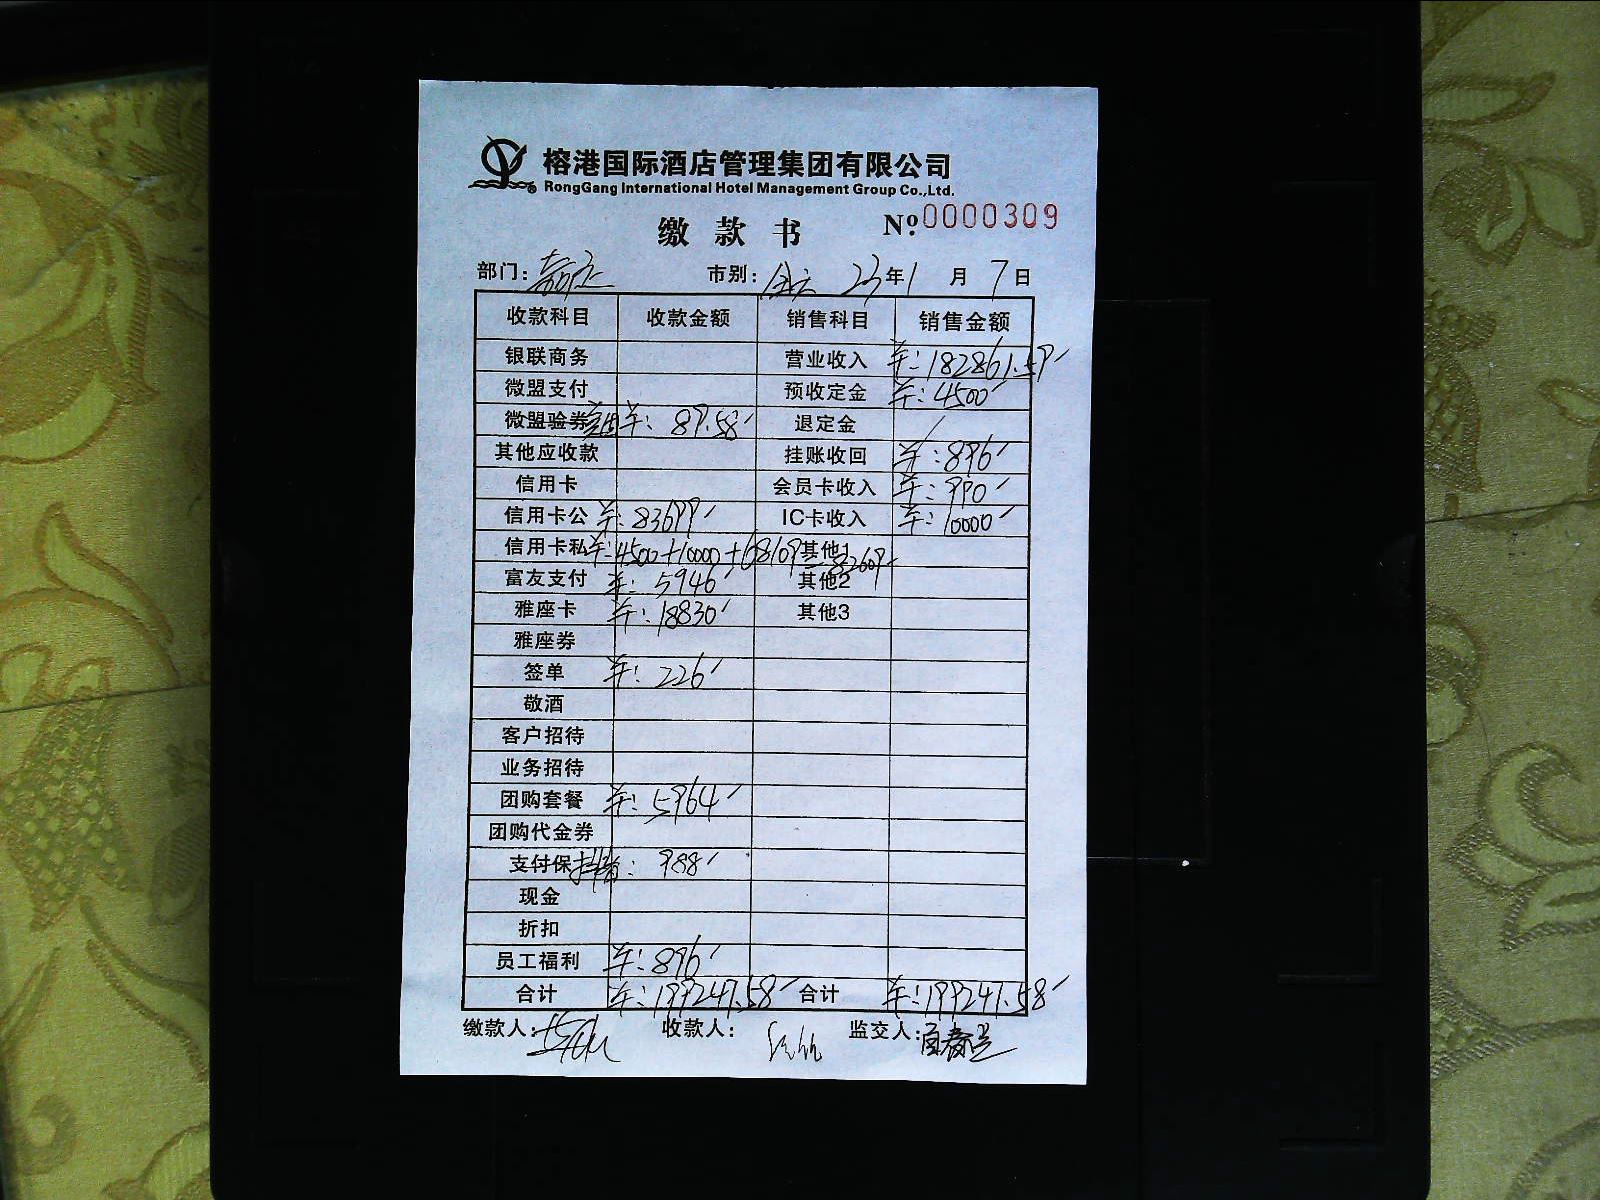 榕港国际酒店管理集团有限公司
RongGang International Hotel Management Group Co.,Ltd.
缴款书 №0000309
部门: 市别: 全天 23年1月7日
收款科目 收款金额 销售科目 销售金额
银联商务 营业收入 ¥:182861.58
微盟支付 预收定金 ¥:4500
微盟验券 美团 ¥:89.58 退定金 /
其他应收款 挂账收回 ¥:896
信用卡 会员卡收入 ¥:990
信用卡公 ¥:83699 IC卡收入 ¥:10000
信用卡私 ¥:4500+10000+68109=82609 其他1
富友支付 ¥:5946 其他2
雅座卡 ¥:18830 其他3
雅座券
签单 ¥:226
敬酒
客户招待
业务招待
团购套餐 ¥:5964
团购代金券
支付保 抖音: 988
现金
折扣
员工福利 ¥:896
合计 ¥:199247.58 合计 ¥:199247.58
缴款人: 收款人: 监交人: